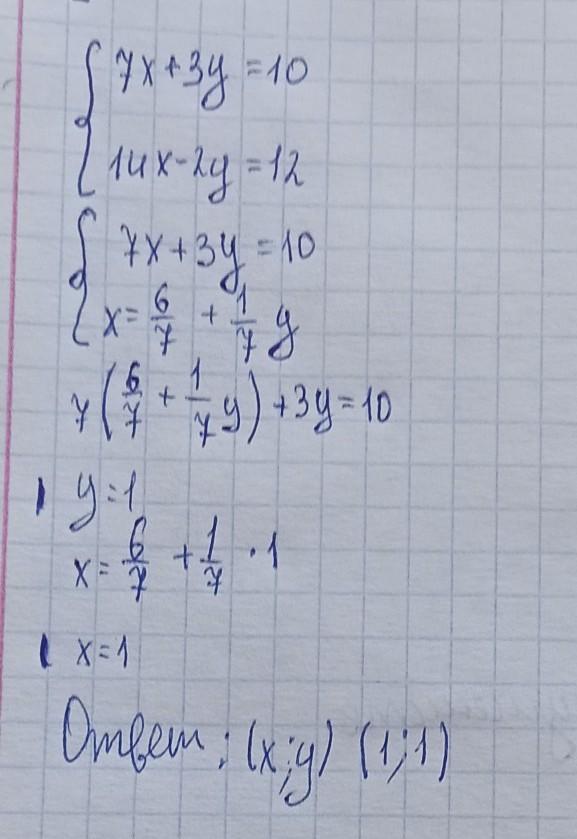 7x+3y=10
14x-2y=12
7x+3y=10
x=6/7+1/7y
7(6/7+1/7y)+3y=10
y=1
x=6/7+1/7·1
x=1
Ответ: (x;y) (1;1)